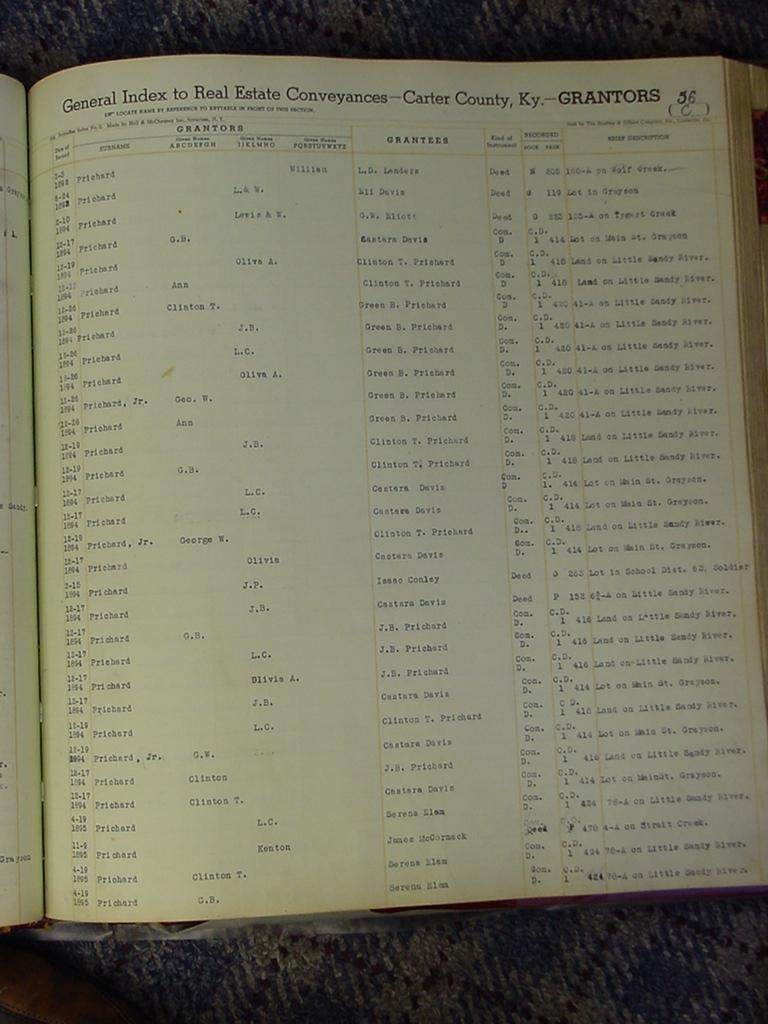 General Index to Real Estate Conveyances—Carter County, Ky.—GRANTORS 56
LOCATE NAME BY REFERENCE TO KEYTABLE IN FRONT OF THIS SECTION C
GRANTORS GRANTEES Kind of Instrument RECORDED BRIEF DESCRIPTION
Date of Record SURNAME Given Names ABCDEFGH Given Names IJKLMNO Given Names PQRSTUVWXYZ BOOK PAGE
Prichard William L.D. Landers Deed N 205 100-A on Wolf Creek.
Prichard L. & W. Eli Davis Deed O 119 Lot in Grayson
1894 Prichard Lewis & W. G.W. Eliott Deed O on Tygart Creek
12-17 1894 Prichard G.B. Castara Davis Com. D C.D. 1 414 Lot on Main St. Grayson
12-19 1894 Prichard Oliva A. Clinton T. Prichard Com. D C.D. 1 418 Land on Little Sandy River.
Prichard Ann Clinton T. Prichard Com. D C.D. 1 418 Land on Little Sandy River.
12-26 1894 Prichard Clinton T. Green B. Prichard Com. D C.D. 1 420 41-A on Little Sandy River.
12-26 1894 Prichard J.B. Green B. Prichard Com. D. C.D. 1 420 41-A on Little Sandy River.
12-26 1894 Prichard L.C. Green B. Prichard Com. D. C.D. 1 420 41-A on Little Sandy River.
12-26 1894 Prichard Oliva A. Green B. Prichard Com. D. C.D. 1 420 41-A on Little Sandy River.
12-26 1894 Prichard, Jr. Geo. W. Green B. Prichard Com. D. C.D. 1 420 41-A on Little Sandy River.
12-26 1894 Prichard Ann Green B. Prichard Com. D. C.D. 1 420 41-A on Little Sandy River.
12-19 1894 Prichard J.B. Clinton T. Prichard Com. D. C.D. 1 418 Land on Little Sandy River.
12-19 1894 Prichard G.B. Clinton T. Prichard Com. D. C.D. 1 418 Land on Little Sandy River.
12-17 1894 Prichard L.C. Castara Davis Com. D C.D. 1. 414 Lot on Main St. Grayson.
12-17 1894 Prichard L.C. Castara Davis Com. D. C.D. 1 414 Lot on Main St. Grayson.
12-19 1894 Prichard, Jr. George W. Clinton T. Prichard Com. D.. C.D. 1 418 Land on Little Sandy River.
12-17 1894 Prichard Olivia Castara Davis Com. D. C.D. 1 414 Lot on Main St. Grayson.
1894 Prichard J.P. Isaac Conley Deed O 253 Lot in School Dist. 62, Soldier
12-17 1894 Prichard J.B. Castara Davis Deed P 152 on Little Sandy River.
12-17 1894 Prichard G.B. J.B. Prichard Com. D. C.D. 1 416 Land on Little Sandy River.
12-17 1894 Prichard L.C. J.B. Prichard Com. D. C.D. 1 416 Land on Little Sandy River.
12-17 1894 Prichard Olivia A. J.B. Prichard Com. D. C.D. 1 416 Land on Little Sandy River.
12-17 1894 Prichard J.B. Castara Davis Com. D. C.D. 1 414 Lot on Main St. Grayson.
12-19 1894 Prichard L.C. Clinton T. Prichard Com. D. C.D. 1 418 Land on Little Sandy River.
12-19 1894 Prichard, Jr. G.W. Castara Davis Com. D. C.D. 1 414 Lot on Main St. Grayson.
12-17 1894 Prichard Clinton J.B. Prichard Com. D. C.D. 1 416 Land on Little Sandy River.
12-17 1894 Prichard Clinton T. Castara Davis Com. D. C.D. 1 414 Lot on MainSt. Grayson.
4-19 1895 Prichard L.C. Serena Elam Com. D. C.D. 1 424 78-A on Little Sandy River.
11-9 1895 Prichard Kenton James McCormack Deed 478 4-A on Strait Creek.
4-19 1895 Prichard Clinton T. Serena Elam Com. D. C.D. 1 424 78-A on Little Sandy River.
4-19 1895 Prichard G.B. Serena Elam Com. D. C.D. 1 424 78-A on Little Sandy River.